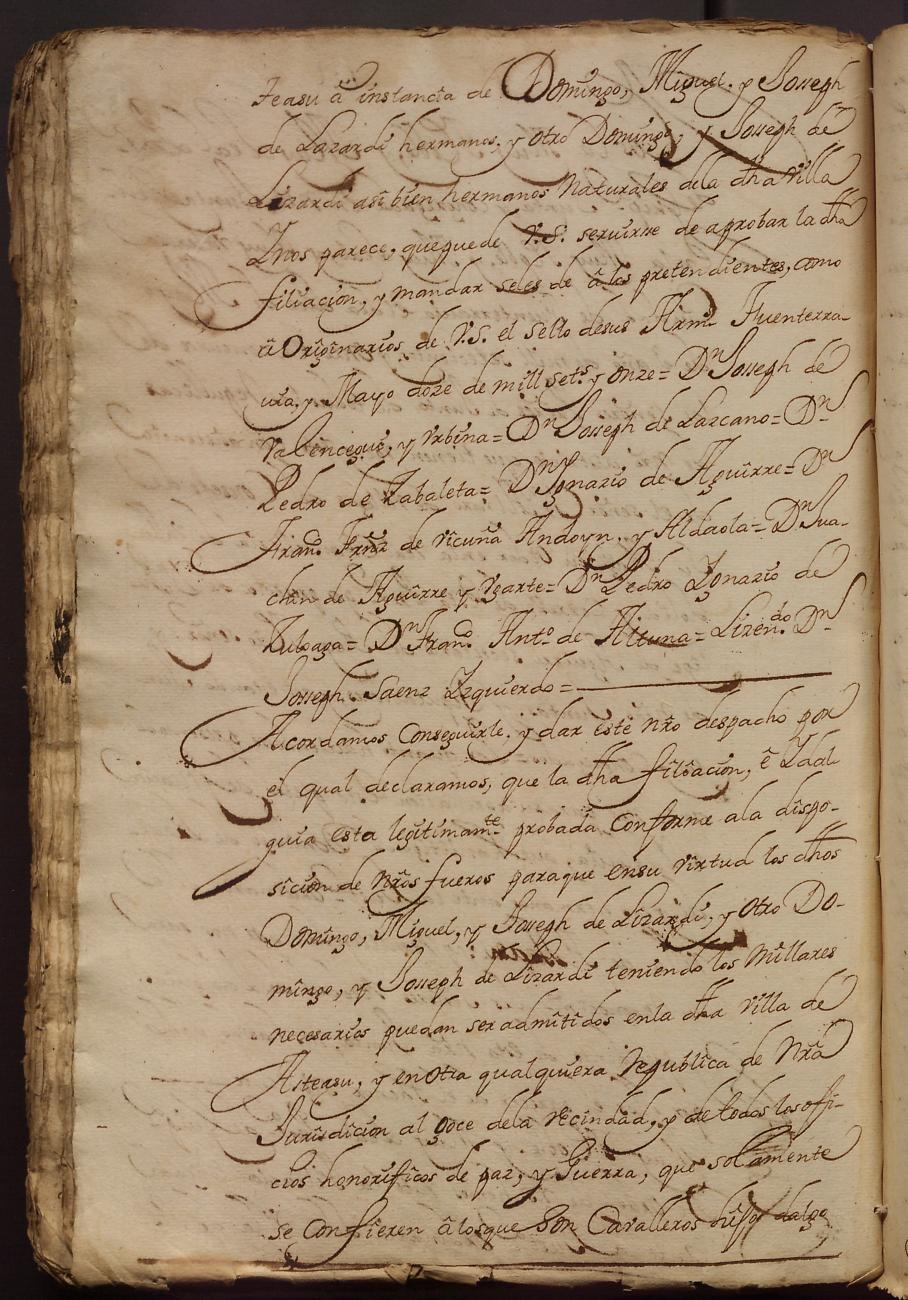 teasu â instancia de Domingo, Miguel, y Joseph
de Lizardi hermanos, y otro Domingo, y Joseph de
Lizardi asi bien hermanos Naturales dela dha Villa
Y nos parece, que puede V.S. servirse de aprobar la dha
filiacion, y mandar seles de â los pretendientes, como
â Originarios de V.S. el sello desus Arms. Fuenterra-
via, y Mayo doze de mill sets. y onze= Dn Joseph de
Valencegui, y Vrbina= Dn Joseph de Lazcano= Dn
Pedro de Zabaleta= Dn Ignazio de Aguirre= Dn
Franco. Frnz de Vicuña Andoyn, y Aldaola= Dn Jua-
chin de Aguirre y Vgarte= Dn Pedro Ygnazio de
Zuloaga= Dn Franco. Anto. de Altuna= Lizendo. Dn
Joseph Saenz Yzquierdo=
Acordamos Conseguirle, y dar este nro despacho por
el qual declaramos, que la dha filiacion, ê Ydal
guia esta legitimamte. probada Conforme ala dispo-
sicion de Nros fueros paraque ensu Virtud los dhos
Domingo, Miguel, y Joseph de Lizardi, y otro Do-
mingo, y Joseph de Lizardi teniendo los Millares
necesarios puedan ser admitidos enla dha Villa de
Asteasu, y en Otra qualquiera Republica de Nra
Jurisdicion al goce dela Vecindad, y de todos los offi-
cios honorificos de paz, y Guerra, que solamente
se Confieren â losque Son Cavalleros hijos dalgo